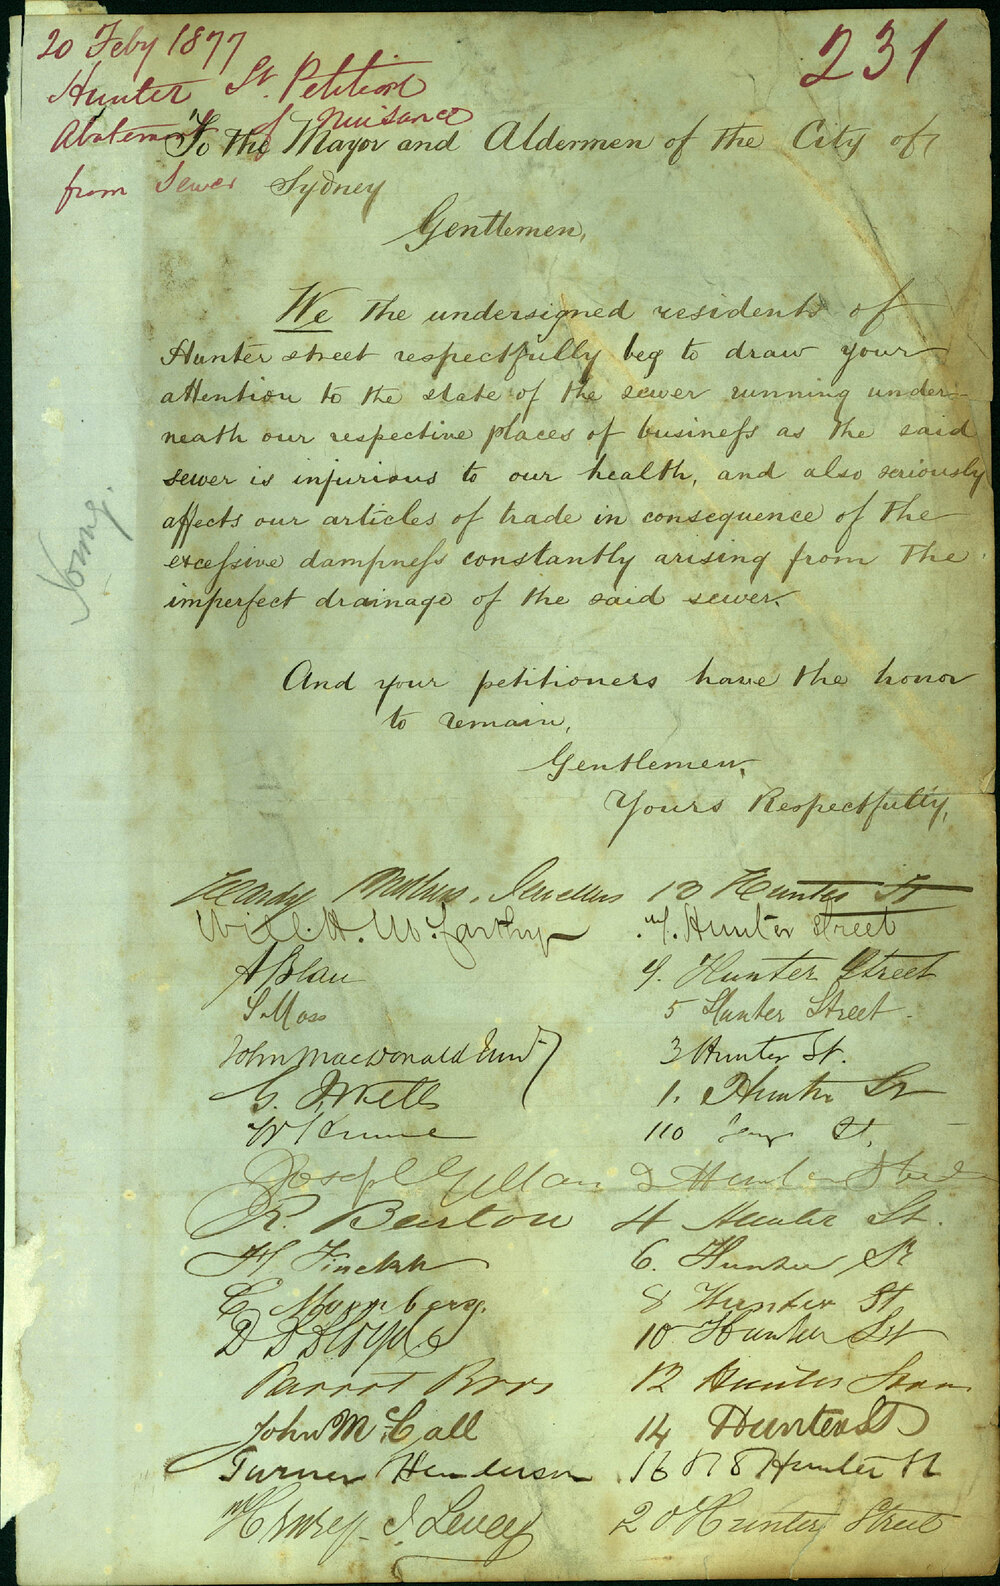 20 Feby 1877
231
Hunter St. Petition
Abatement of Nuisance
from Sewer
To the Mayor and Aldermen of the City of
Sydney
Gentlemen,
We the undersigned residents of
Hunter street respectfully beg to draw your
attention to the state of the sewer running under-
neath our respective places of business as the said
sewer is injurious to our health, and also seriously
affects our articles of trade in consequence of the
excessive dampness constantly arising from the
imperfect drainage of the said sewer.
Young.
And your petitioners have the honor
to remain,
Gentlemen,
Yours Respectfully,
Hardy Brothers, Jewellers 13 Hunter St
Will. H. McCarthy Hunter Street
A Blau 9. Hunter Street
S Moss 5 Hunter Street
John MacDonald 3 Hunter St.
G. 1. Hunter St
W 110 St.
Joseph 2 Hunter Street
R. Burton 4 Hunter St.
H Finckh 6. Hunter St
C 8 Hunter St
10 Hunter St
Parrot Bros 12 Hunter Street
John McCall 14 Hunter St
Turner Henderson 16 & 18 Hunter St
Henry J. 20 Hunter Street